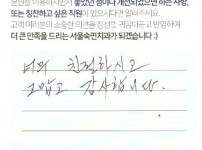 본원을 이용하시면서 좋았던 점이나 개선되었으면 하는 사항,
또는 칭찬하고 싶은 직원이 있으시다면 알려주세요.
고객 여러분의 소중한 의견을 정성껏 귀담아듣고 반영하여
더 큰 만족을 드리는 서울숙면치과가 되겠습니다 :)
친절하시고
고맙고 감사합니다.